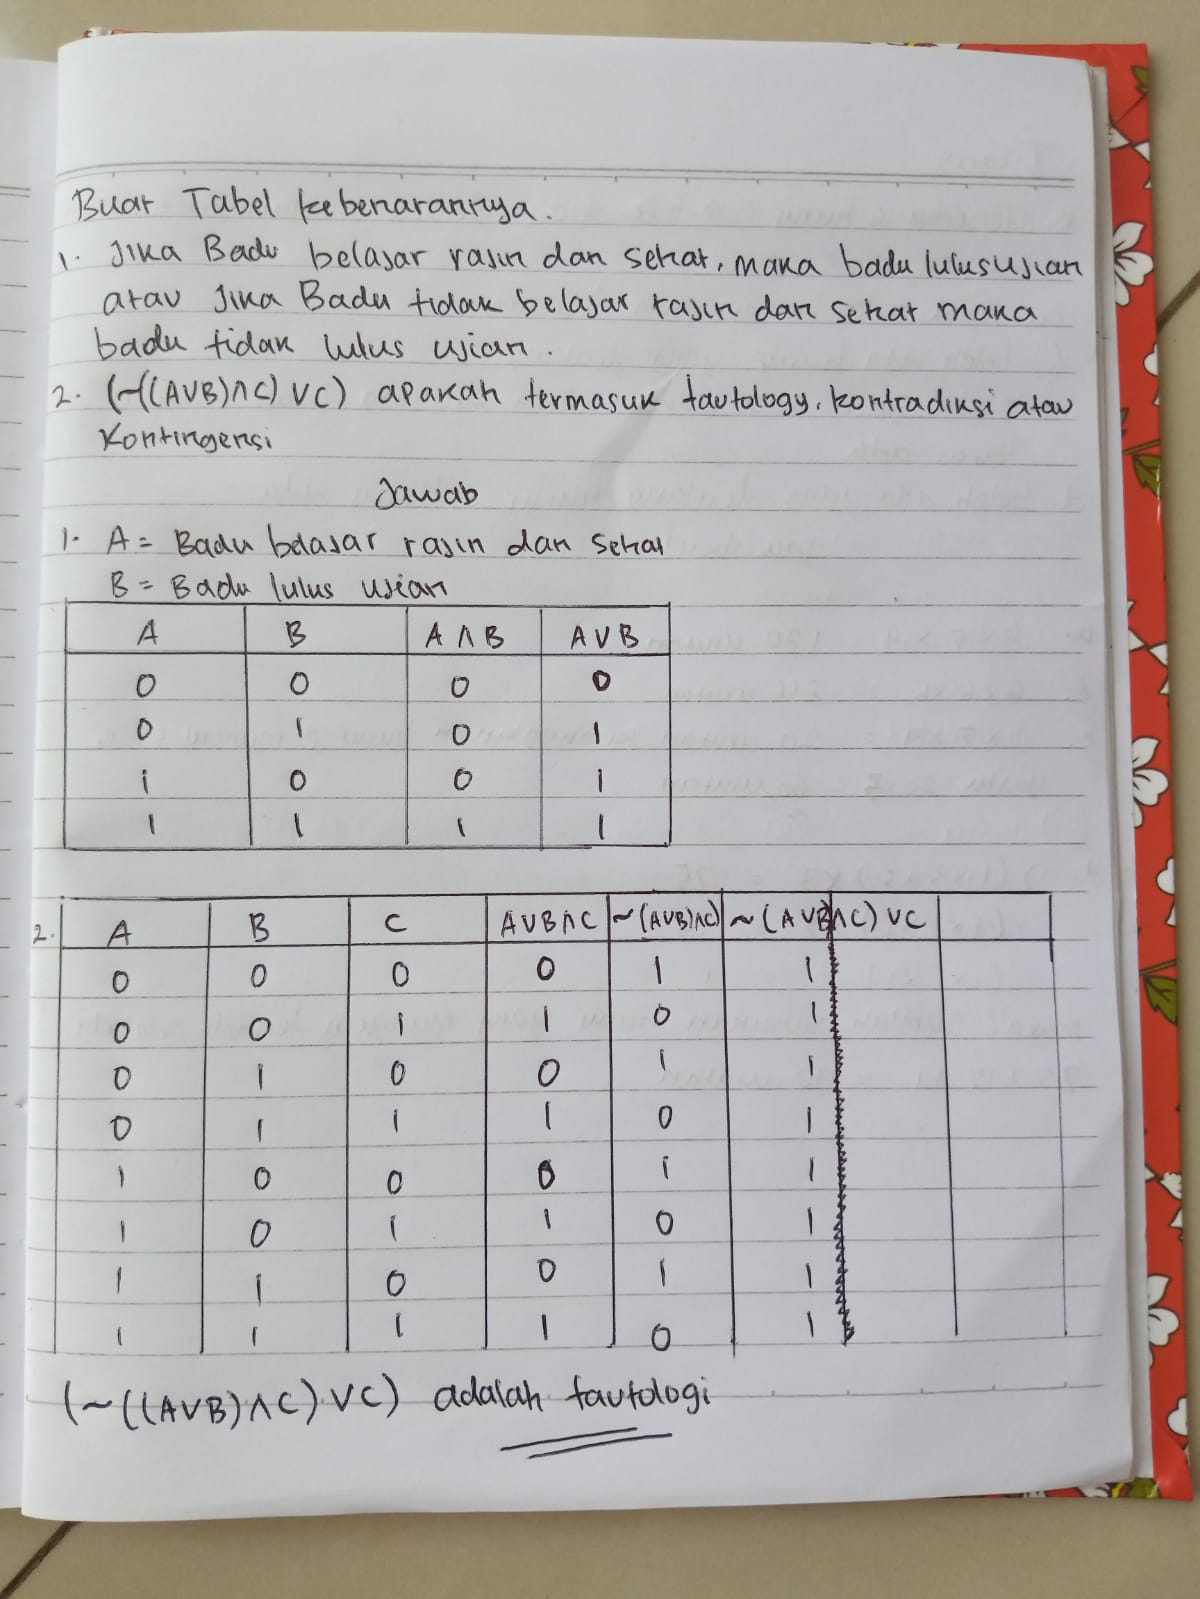 Buat Tabel kebenarannya.
1. Jika Badu belajar rajin dan sehat, maka badu lulus ujian
atau Jika Badu tidak belajar rajin dan sehat maka
badu tidak lulus ujian.
2. (~((A∨B)∧C) ∨C) apakah termasuk tautology, kontradiksi atau
Kontingensi
Jawab
1. A = Badu belajar rajin dan sehat
B = Badu lulus ujian
A B A ∧ B A ∨ B
0 0 0 0
0 1 0 1
1 0 0 1
1 1 1 1
2. A B C A∨B∧C ~(A∨B)∧C) ~(A∨B∧C) ∨C
0 0 0 0 1 1
0 0 1 1 0 1
0 1 0 0 1 1
0 1 1 1 0 1
1 0 0 0 1 1
1 0 1 1 0 1
1 1 0 0 1 1
1 1 1 1 0 1
(~((A∨B)∧C) ∨C) adalah tautologi